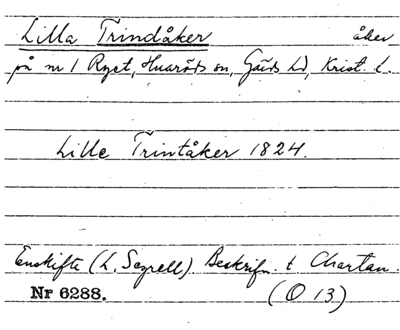 Lilla Trindåker åker
på nr 1 Ryet, Huaröds sn, Gärds hd, Krist. l.
Lille Trintåker 1824.
Enskifte (L. Segrell) Beskrifn. t Chartan.
Nr 6288. (O 13)